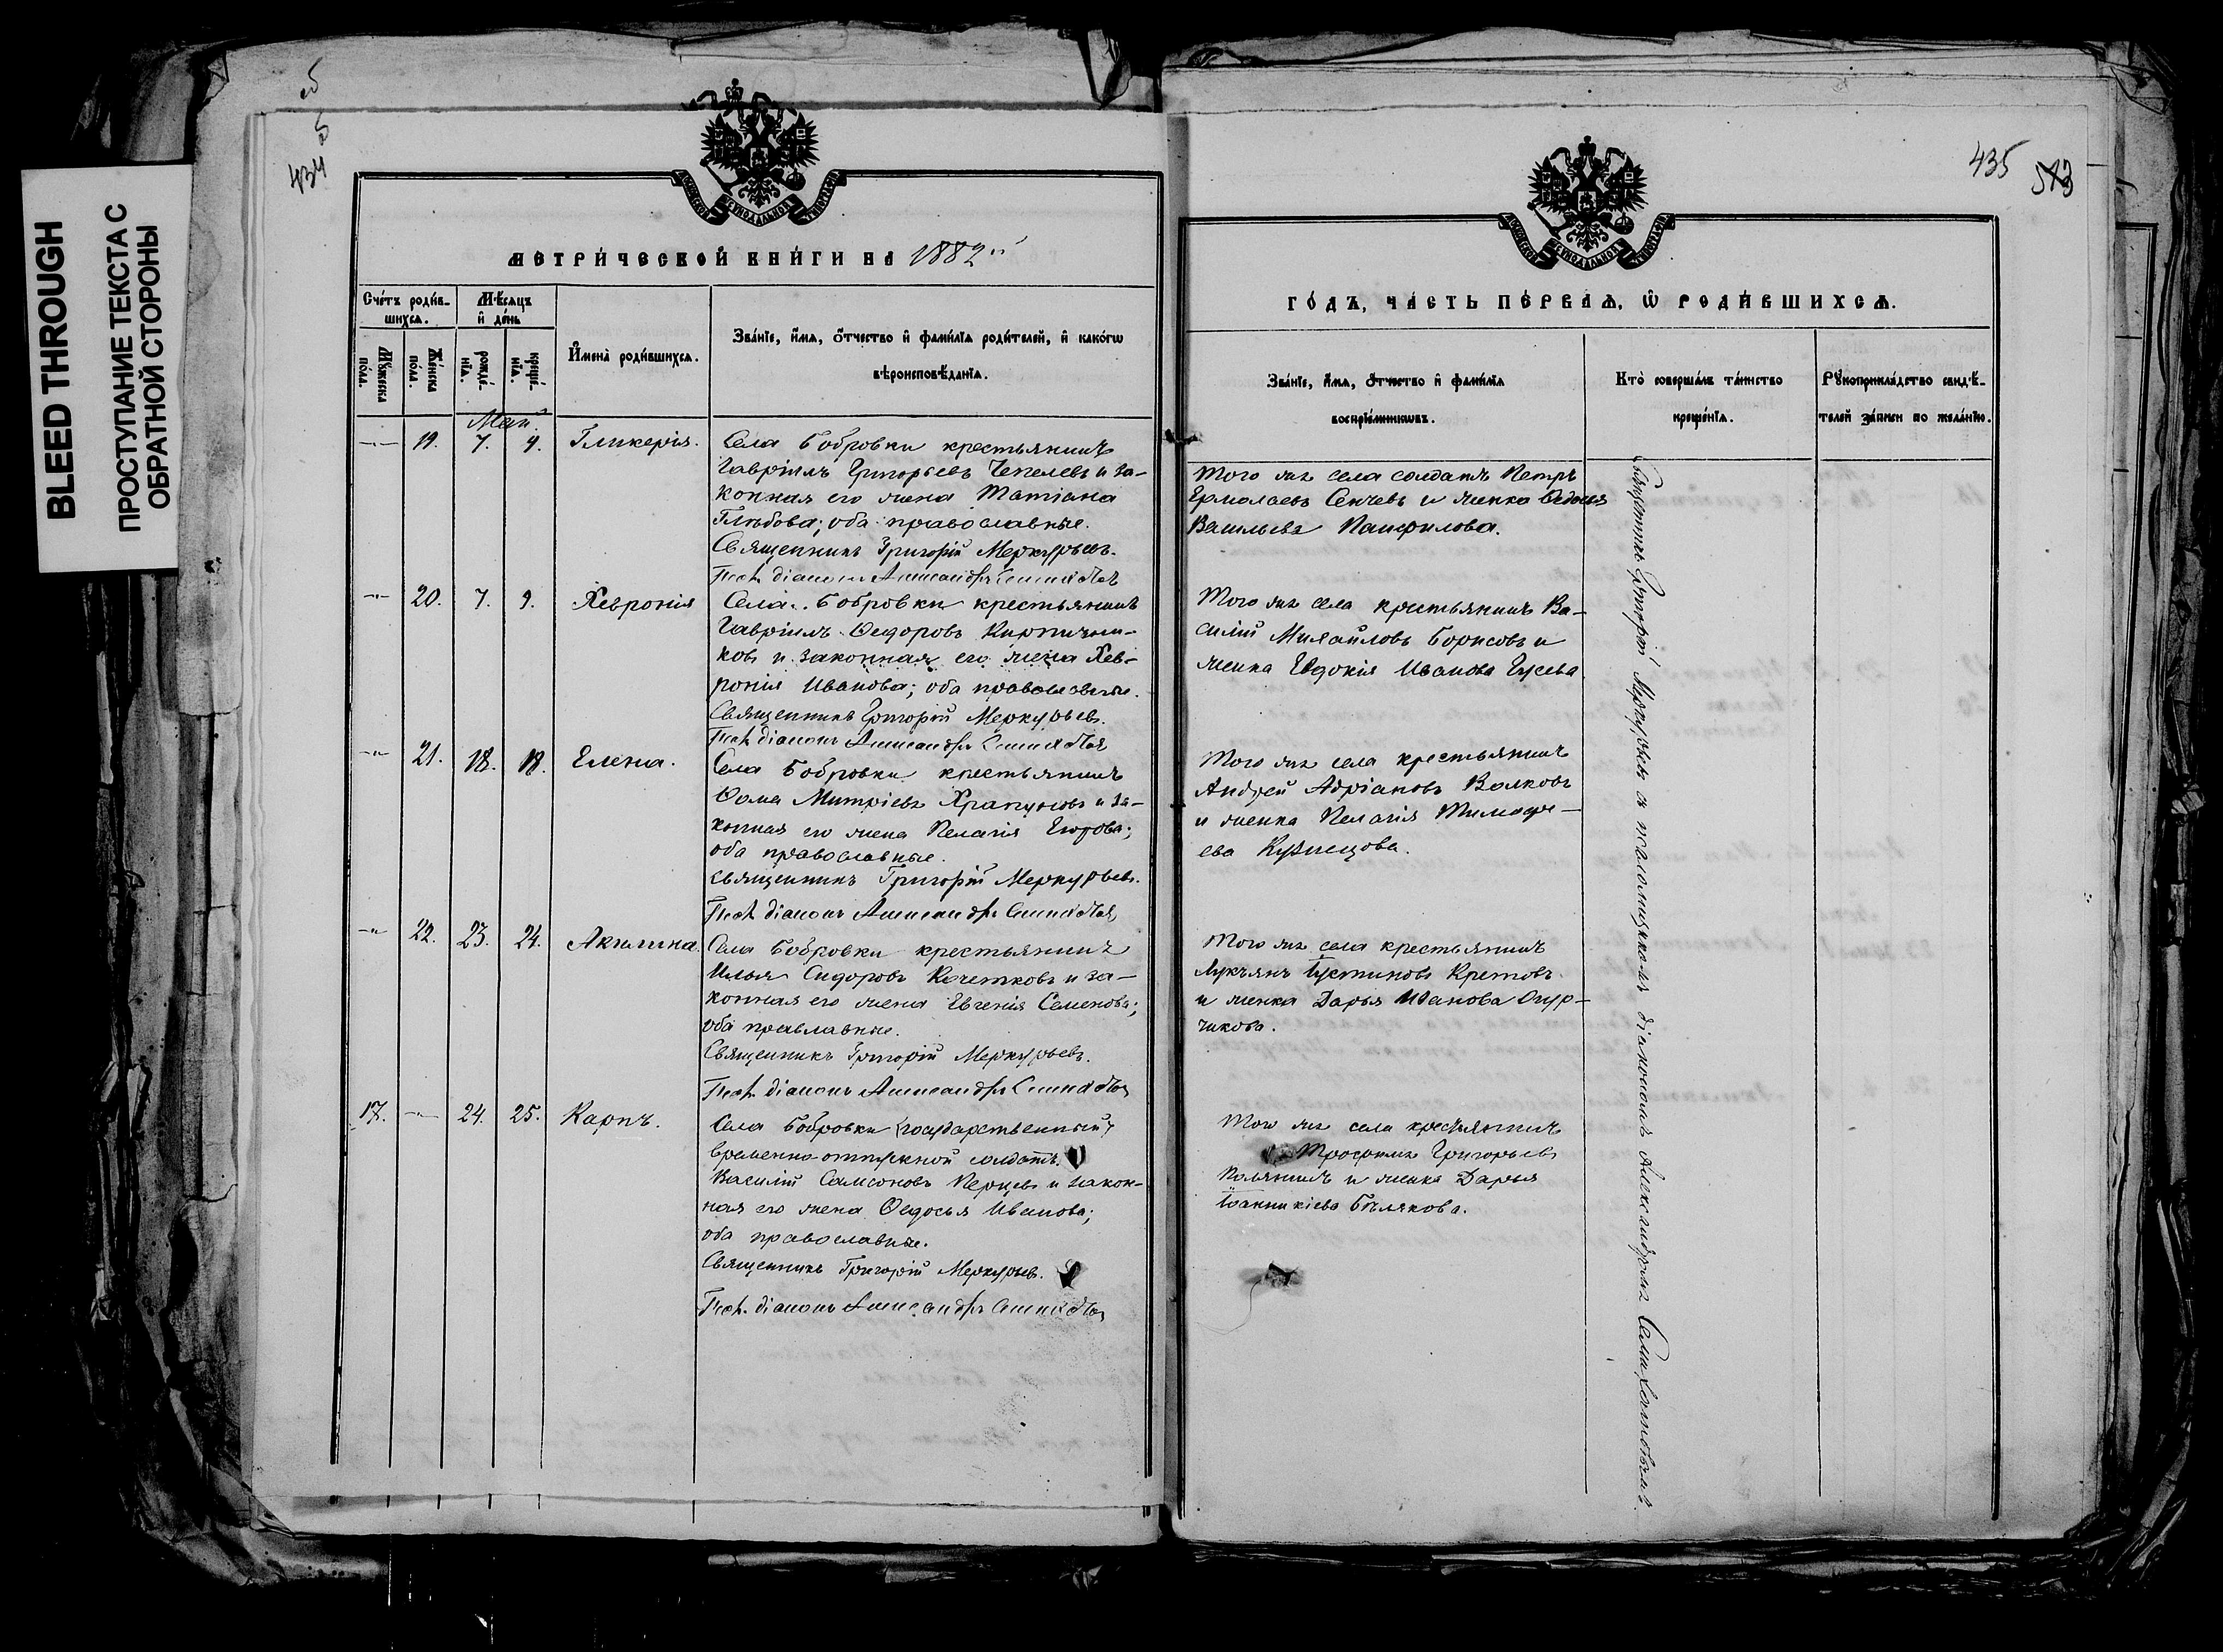 BLEED THROUGH
ПРОСТУПАНИЕ ТЕКСТА С
ОБРАТНОЙ СТОРОНЫ
434
МЕТРИ́ЧЕСКОЙ КНИ́ГИ НА 1882й
Сче́тъ роди́в-
шихсѧ.
Мѣ́сѧцъ
и҆ де́нь
Мꙋ́жеска
по́ла.
Же́нска
по́ла.
рожде́-
нїѧ.
креще́-
нїѧ.
И҆мена̀ роди́вшихсѧ.
Зва́нїе, и҆́мѧ, ѻ҆́тчество и҆ фами́лїѧ роди́телей, и҆ како́гѡ
вѣроисповѣ́данїѧ.
Май.
19. 7. 9. Гликерія.
Села Бобровки крестьянинъ
Гавріилъ Григорьевъ Чепелевъ и за-
конная его жена Татіана
Глѣбова; оба православные.
Священникъ Григорій Меркурьевъ.
Псал. діаконъ Александръ
20. 7. 9. Хевронія
Села Бобровки крестьянинъ
Гавріилъ Ѳедоровъ Кирпични-
ковъ и законная его жена Хев-
ронія Иванова; оба православные.
Священникъ Григорій Меркурьевъ.
Псал. діаконъ Александръ
21. 18. 18. Елена.
Села Бобровки крестьянинъ
Ѳома Митріевъ Храпуновъ и за-
конная его жена Пелагія Егорова;
оба православные.
Священникъ Григорій Меркурьевъ.
Псал. діаконъ Александръ
22. 23. 24. Акилина.
Села Бобровки крестьянинъ
Илья Сидоровъ Кочетковъ и за-
конная его жена Евгенія Семенова;
оба правлавные.
Священникъ Григорій Меркурьевъ.
Псал. діаконъ Александръ
17. 24. 25. Карпъ.
Села Бобровки (государственный)
временно-отпускной солдатъ
Василій Самсоновъ Перцевъ и закон-
ная его жена Ѳедосья Иванова;
оба православные.
Священникъ Григорій Меркурьевъ.
Псал. діаконъ Александръ
435
513
ГО́ДЪ, ЧА́СТЬ ПЕ́РВАѦ, Ѡ҆ РОДИ́ВШИХСѦ.
Зва́нїе, и҆́мѧ, ѻ҆́тчество и҆ фами́лїѧ
воспрїе́мникѡвъ.
Кто̀ соверша́лъ та́инство
креще́нїѧ.
Рꙋкоприкла́дство свидѣ́-
телей за́писи по жела́нїю.
Того же села солдатъ Петръ
Ермолаевъ Сенчевъ и женка Ѳедосья
Васильева Панфилова.
Того же села крестьянинъ Ва-
силій Михайловъ Борисовъ и
женка Евдокія Иванова Гусева
Того же села крестьянинъ
Андрей Адріановъ Волковъ
и женка Пелагія Тимофе-
ева Кузнецова.
Того же села крестьянинъ
Лукъянъ Іустиновъ Кретовъ
и женка Дарья Иванова Огур-
чикова.
Того же села крестьянинъ
Трофимъ Григорьевъ
Полянинъ и женка Дарья
Іоанникіева Бѣлякова.
Священникъ Григорій Меркурьевъ съ псаломщикомъ діакономъ Александромъ